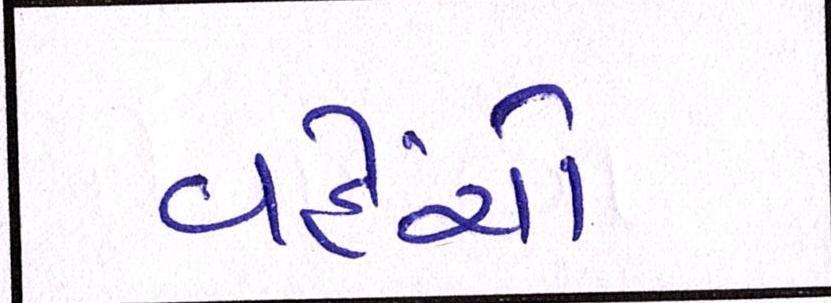 વહેંચો